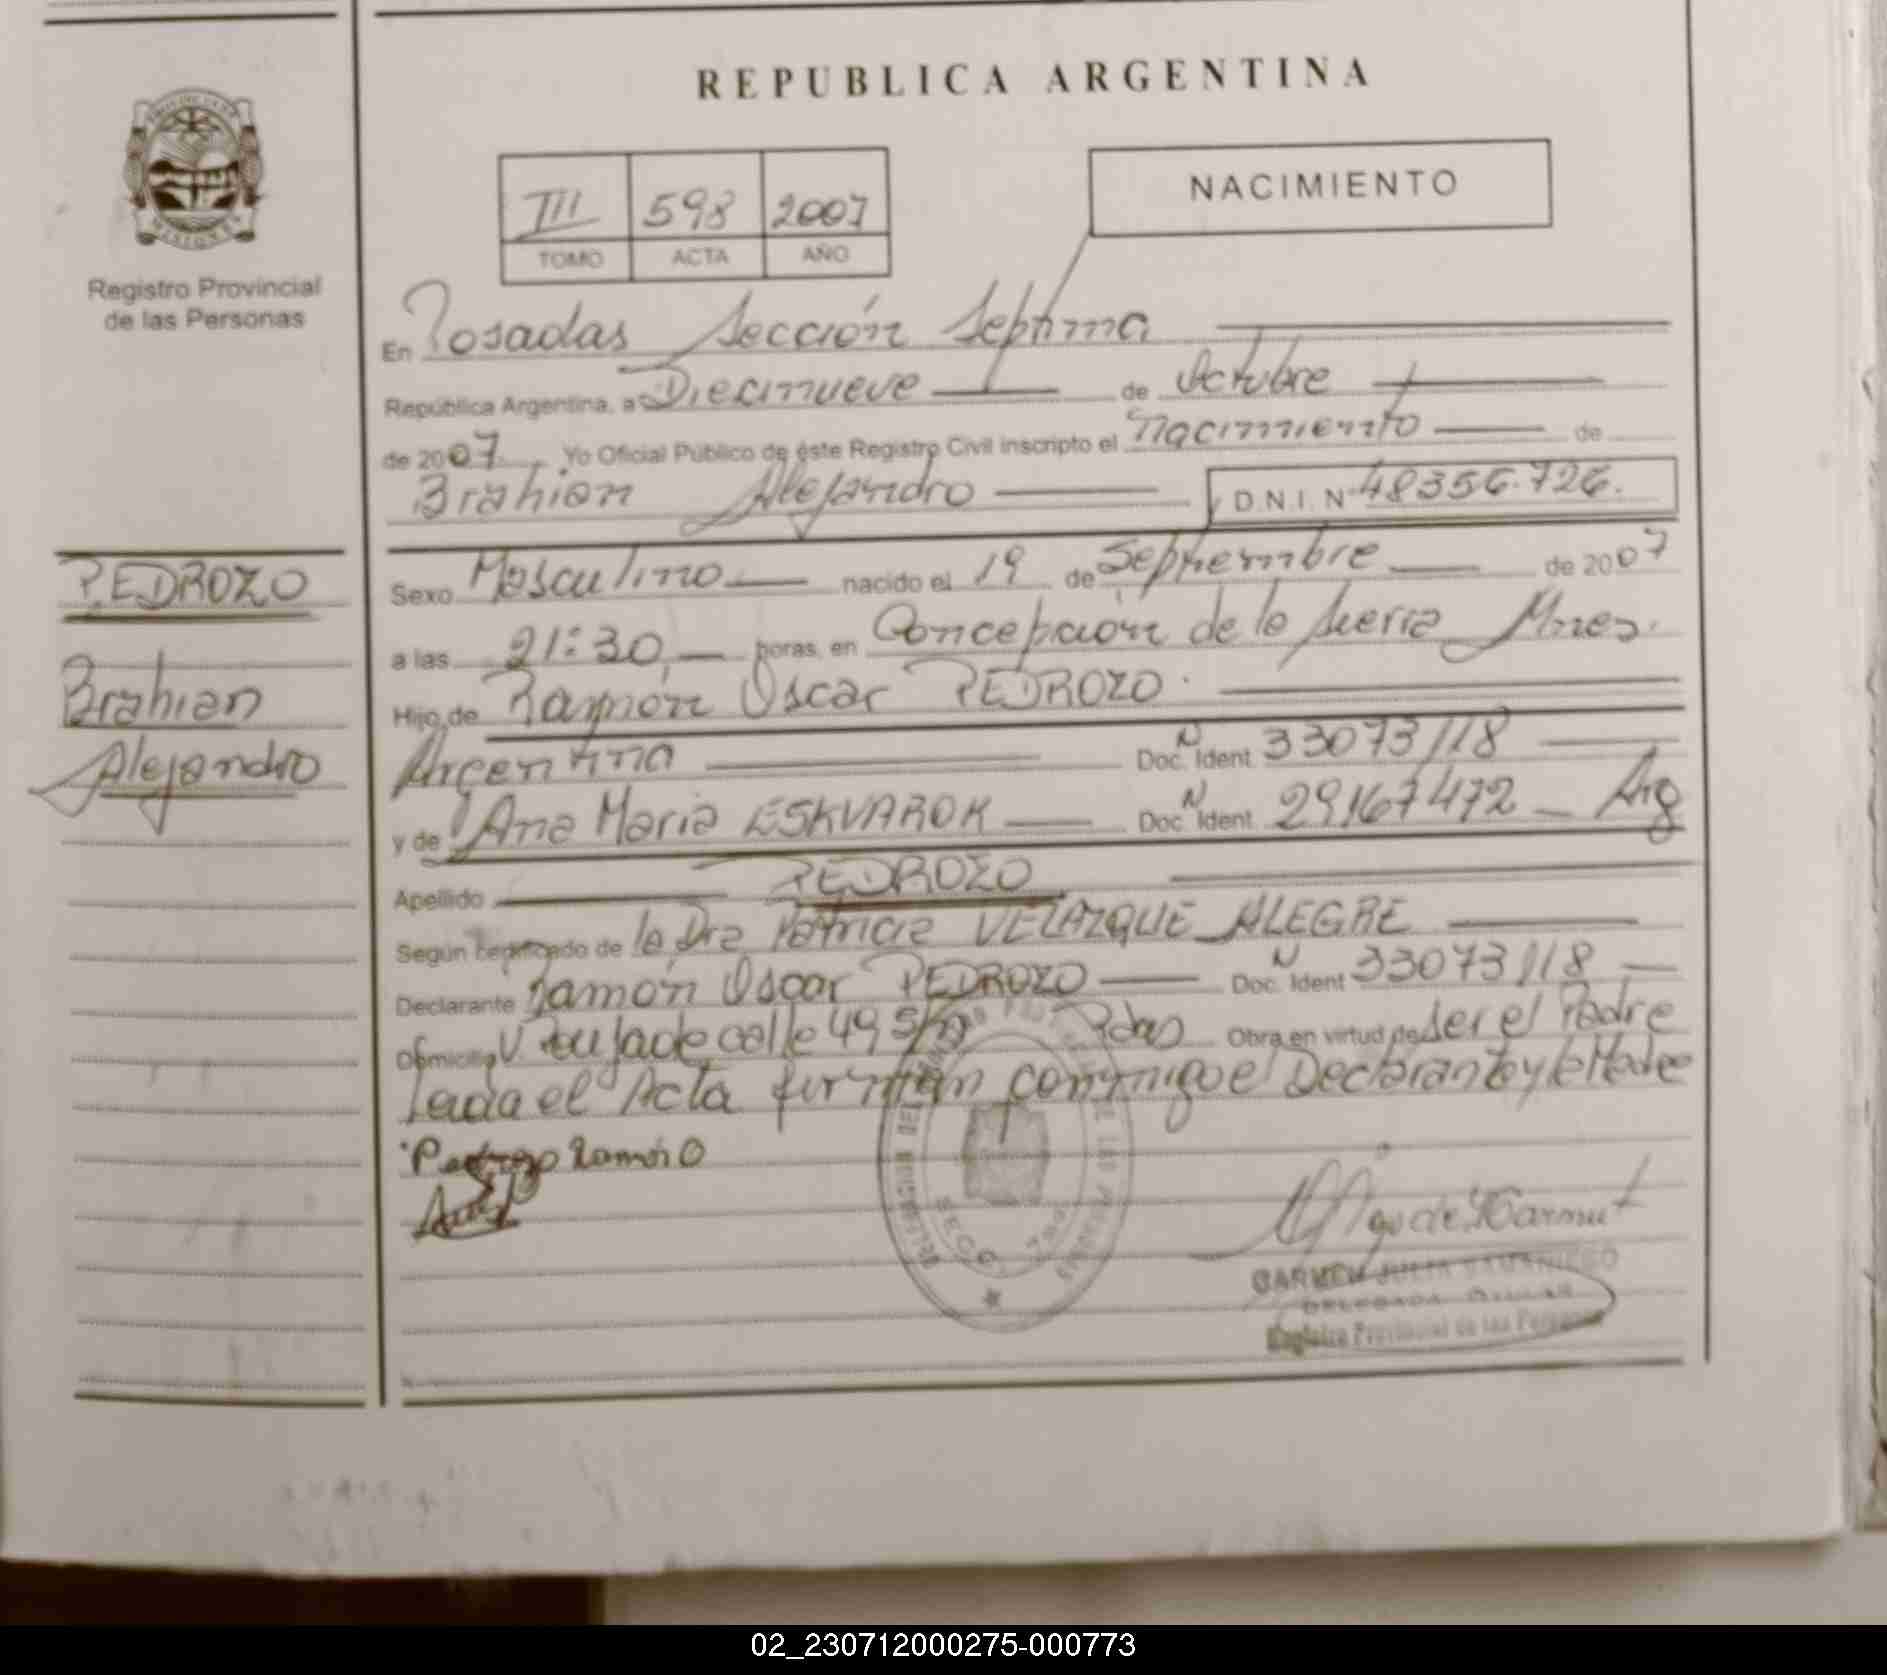 REPUBLICA ARGENTINA
III 598 2007
TOMO ACTA AÑO
NACIMIENTO
Registro Provincial
de las Personas
En Posadas Sección Septima
República Argentina, a Diecinueve de Octubre
de 2007 Yo Oficial Público de éste Registro Civil inscripto el Nacimiento de
Brahian Alejandro D.N.I. N 48356.726.
PEDROZO
Brahian
Alejandro
Sexo Masculino nacido el 19 de Septiembre de 2007
a las 21:30 horas, en Concepción de la Sierra Mnes.
Hijo de Ramón Oscar PEDROZO
Argentina Doc. Ident N 33073118
y de Ana Maria ESKVAROK Doc. Ident N 29167472 Arg
Apellido PEDROZO
Según certificado de la Dra Patricia VELAZQUE ALEGRE
Declarante Ramón Oscar PEDROZO Doc. Ident N 33073118
Domicilio calle 49 s/n Pdas Obra en virtud de ser el Padre
Leida el Acta firman conmigo el Declarante y la Madre
Pedrozo Ramón O
CARMEN JULIA SAMANIEGO
Registro Provincial de las Personas
02_230712000275-000773